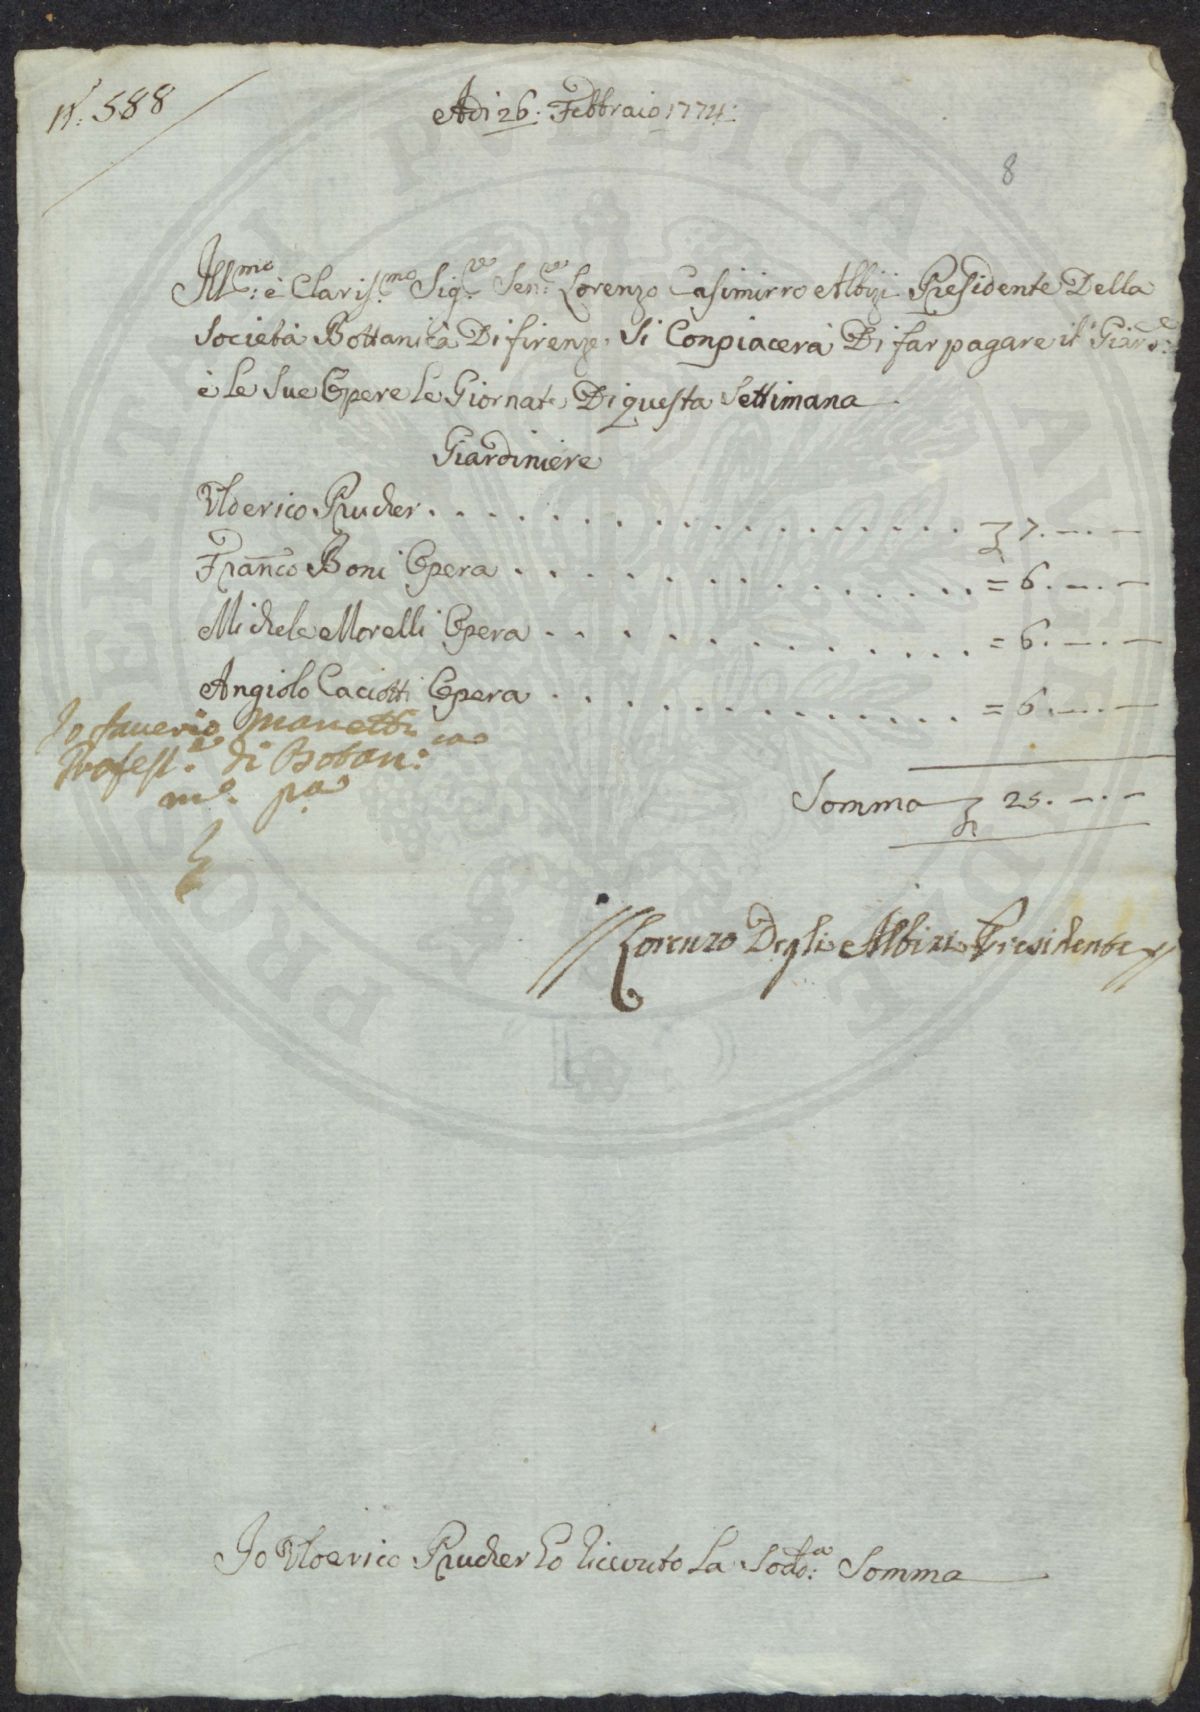 N.º 588
Adi 26. Febbraio 1774.
8
Ill.mo e Claris.mo Sig.re Sen.re Lorenzo Casimirro Albizi Presidente Della
Società Bottanica Di firenze, Si Conpiacerà Di far pagare il Giard.e
è le Sue Opere le Giornate Di questa Settimana
Giardiniere
Ulderico Prucher . . . . . . . . . . . . . . . . 7. —. —
Fran.co Boni Opera . . . . . . . . . . . . = 6. —. —
Michele Morelli Opera . . . . . . . . . . . = 6. —. —
Angiolo Caciotti Opera . . . . . . . . . . . = 6. —. —
Io Saverio Manetti
Profess.e di Botan.ca
m.o p.a
Somma 25. —. —
Lorenzo Degli Albizi Presidente
Io Ulderico Prucher ho riceuto La Sod.a Somma
PROSPERITATI PUBLICAE AUGENDAE